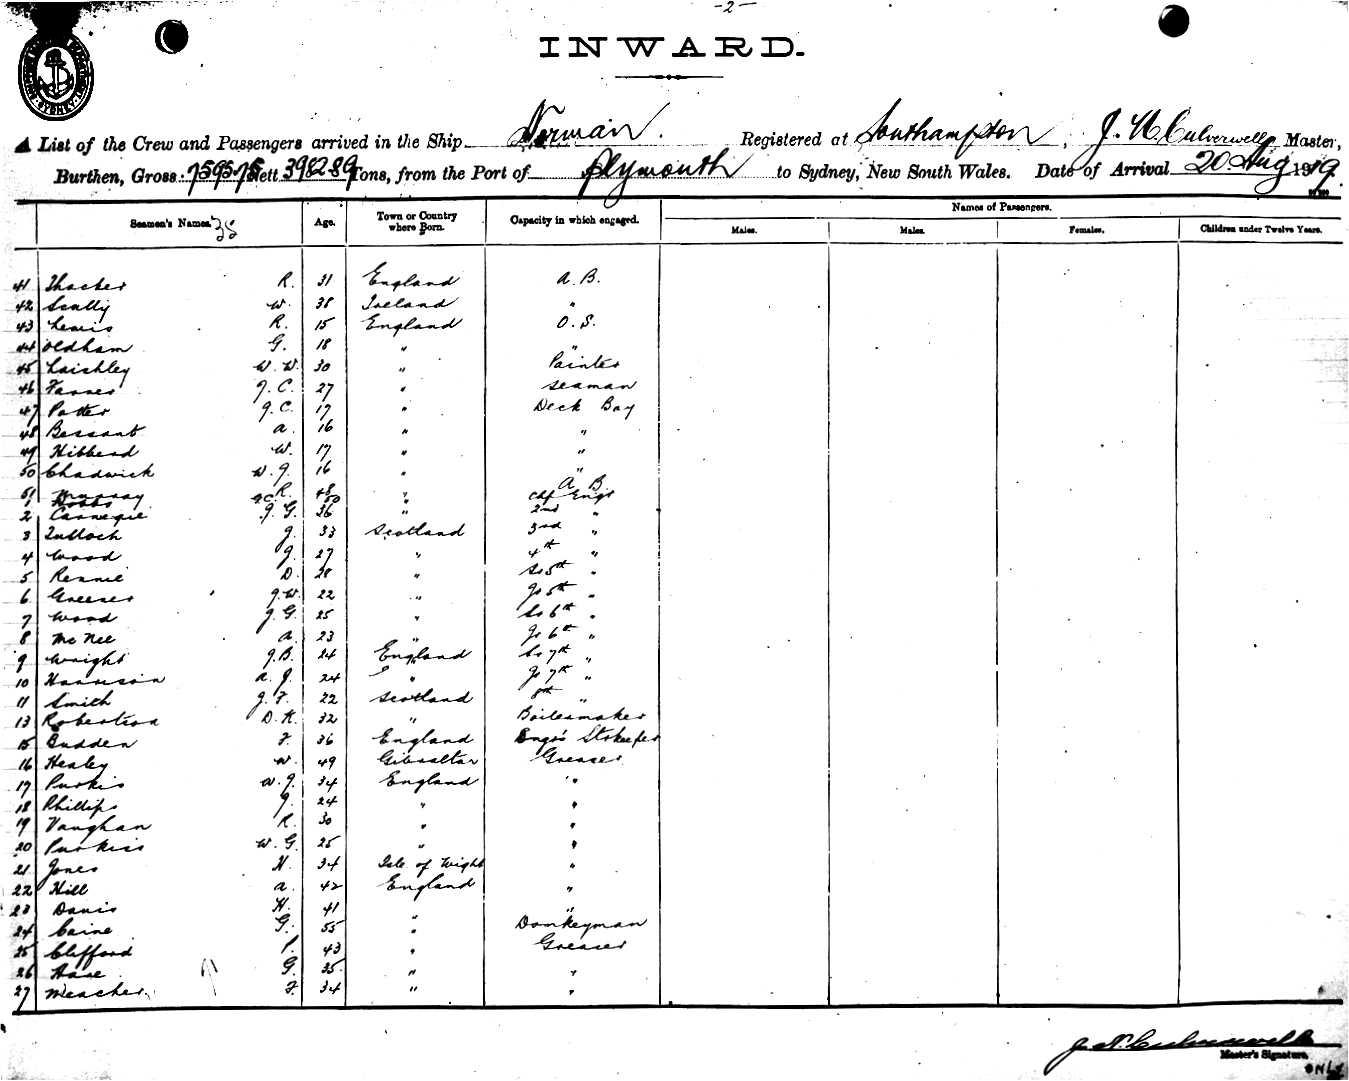 -2-
INWARD.
A List of the Crew and Passengers arrived in the Ship Norman. Registered at Southampton, J. N. Culverwell, Master,
Burthen, Gross 7595.75 Nett 3982.89 Tons, from the Port of Plymouth to Sydney, New South Wales. Date of Arrival 20. Aug 1919.
Seamen's Names. 38 Age. Town or Country where Born. Capacity in which engaged. Names of Passengers.
Males. Males. Females. Children under Twelve Years.
41 Thacker R. 31 England A. B.
42 Scully W. 38 Ireland "
43 Lewis R. 15 England O. S.
44 Oldham G. 18 " "
45 Laishley W. W. 30 " Painter
46 J. C. 27 " Seaman
47 Potter J. C. 17 " Deck Boy
48 Bessant A. 16 " "
49 Hibberd W. 17 " "
50 Chadwick W. J. 16 " "
51 Murray R. 48 " A. B.
1 Hobbs 50 " Chf Engr
2 Carnegie J. G. 36 " 2nd "
3 Tulloch J. 33 Scotland 3rd "
4 Wood J. 27 " 4th "
5 Rennie D. 28 " Sr 5th "
6 Greeses J. W. 22 " Jr 5th "
7 Wood J. G. 25 " Sr 6th "
8 McNee A. 23 " Jr 6th "
9 Wright J. B. 24 England Sr 7th "
10 Harrison A. J. 24 " Jr 7th "
11 Smith J. F. 22 Scotland 8th "
13 Robertson D. K. 32 " Boilermaker
15 Budden F. 36 England Engrs Stokeeper
16 Healey W. 49 Gibraltar Greaser
17 Purkis W. J. 34 England "
18 Phillips J. 24 " "
19 Vaughan R. 30 " "
20 Purkiss W. G. 25 " "
21 Jones H. 34 Isle of Wight "
22 Hill A. 42 England "
23 Davis H. 41 " "
24 Caine G. 55 " Donkeyman
25 Clifford P. 43 " Greaser
26 Hare G. 35 " "
27 Meacher F. 34 " "
J. N. Culverwell
Master's Signature.
ONLY